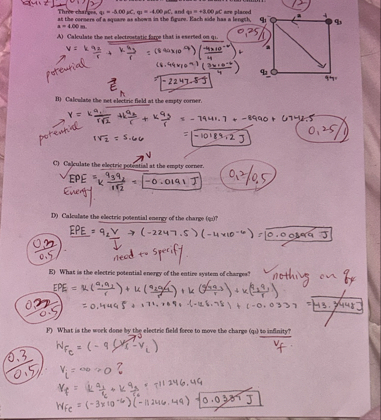 Three charges, q₁ = -5.00 μC, q₂ = -4.00 μC, and q₃ = +3.00 μC are placed
at the corners of a square as shown in the figure. Each side has a length,
a = 4.00 m.
q₁
q₃
a
q₂
A) Calculate the net electrostatic force that is exerted on q₁.
0,25/1
V = k q₂/r + k q₃/r = (8.99x10⁹)(-4x10⁻⁶/4) +
(8.99x10⁹)(3x10⁻⁶/4)
potential
= -2247.5 J
E
B) Calculate the net electric field at the empty corner.
V = k q₁/r√2 + k q₂/r + k q₃/r = -7941.7 - 8990 + 6742.5
potential
4√2 = 5.66
= -10189.2 J
0,25/1
C) Calculate the electric potential at the empty corner.
V
EPE = k q₃q₂/r√2 = -0.0191 J
Energy
0,2/0,5
D) Calculate the electric potential energy of the charge (q₂).
EPE = q₂V → (-2247.5)(-4x10⁻⁶) = 0.00899 J
need to specify
0.5
E) What is the electric potential energy of the entire system of charges?
nothing on
EPE = k(q₁q₂/r) + k(
) + k(
) + k(
)
+ (-0.0337
0.5
F) What is the work done by the electric field force to move the charge (q₃) to infinity?
W_Fe = (-q (V_f - V_i)
V_f
0.3
0.5
V_i = ∞ → 0?
V_f = k q₁/r + k q₂/r = -11246.49
W_Fe = (-3x10⁻⁶)(-11246.49) = 0.0337 J